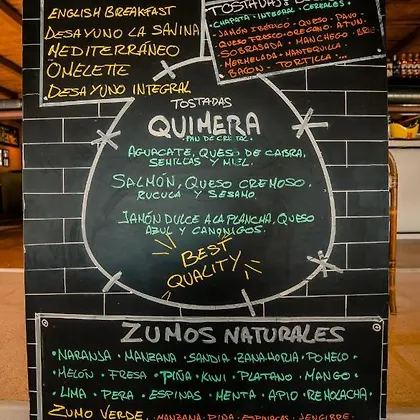 ENGLISH BREAKFAST
DESAYUNO LA SAVINA
MEDITERRÁNEO
OMELETTE
DESAYUNO INTEGRAL
TOSTADAS:
CHAPATA · INTEGRAL · CEREALES ·
· JAMÓN IBÉRICO · QUESO · PAVO ·
QUESO FRESCO · ORÉGANO · ATÚN ·
SOBRASADA · MANCHEGO · BRIE
MERMELADA · MANTEQUILLA ·
BACON · TORTILLA ...
TOSTADAS
QUIMERA
· PAN DE CRISTAL ·
AGUACATE, QUESO DE CABRA,
SEMILLAS Y MIEL.
SALMÓN, QUESO CREMOSO,
RUCULA Y SESAMO.
JAMÓN DULCE A LA PLANCHA, QUESO
AZUL Y CANONIGOS.
BEST
QUALITY
ZUMOS NATURALES
· NARANJA · MANZANA · SANDIA · ZANAHORIA · POMELO ·
· MELÓN · FRESA · PIÑA · KIWI · PLATANO · MANGO ·
· LIMA · PERA · ESPINAS · MENTA · APIO · REMOLACHA ·
ZUMO VERDE. · MANZANA · PIÑA · ESPINACAS · JENGIBRE ·